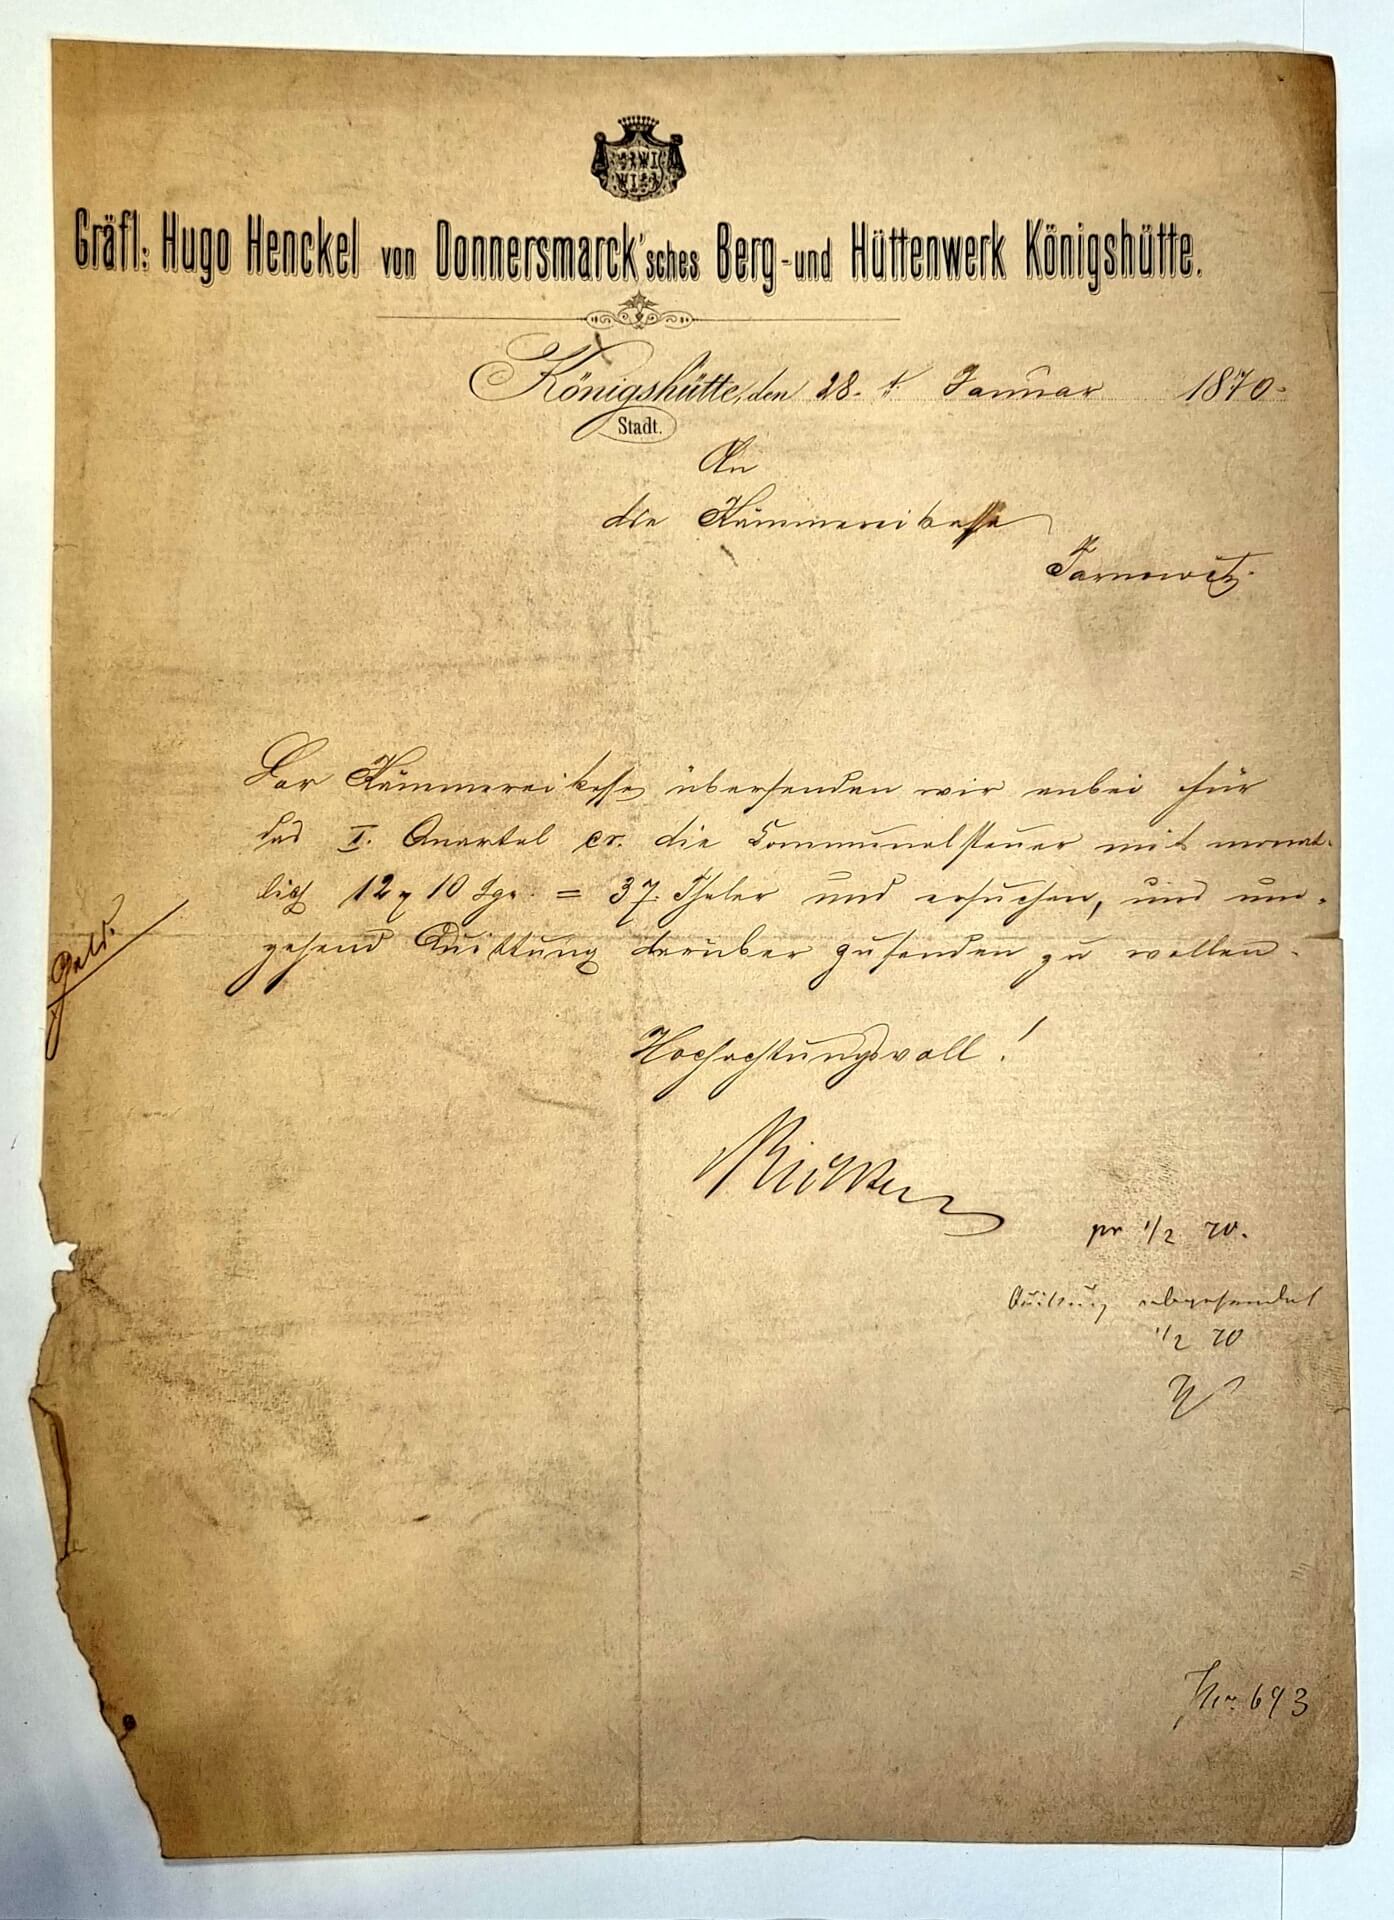 Gräfl: Hugo Henckel von Donnersmarck'sches Berg-und Hüttenwerk Königshütte.
Königshütte, den 28. t. Januar 1870.
Stadt.
An
die Kämmereikasse
Tarnowitz.
Der Kämmereikasse übersenden wir anbei für
das I. Quartal cr. die Communalsteuer mit monat-
lich 12 10 Sgr. = 37 Thaler und ersuchen, uns um-
gehend Quittung darüber zusenden zu wollen.
Geld.
Hochachtungsvoll!
Richter
pr 1/2 70.
Quittung abgesendet
1/2 70
693